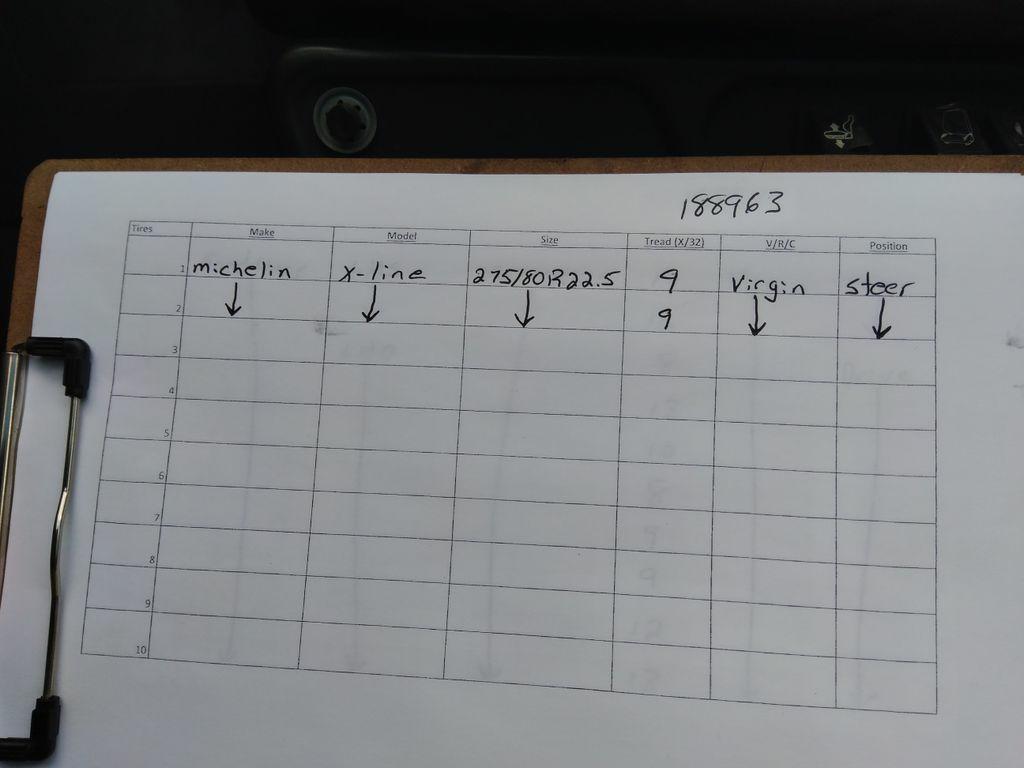 188963
Tires Make Model Size Tread (X/32) V/R/C Position
1 michelin X-line 275/80R22.5 9 Virgin steer
2 ↓ ↓ ↓ 9 ↓ ↓
3
4
5
6
7
8
9
10